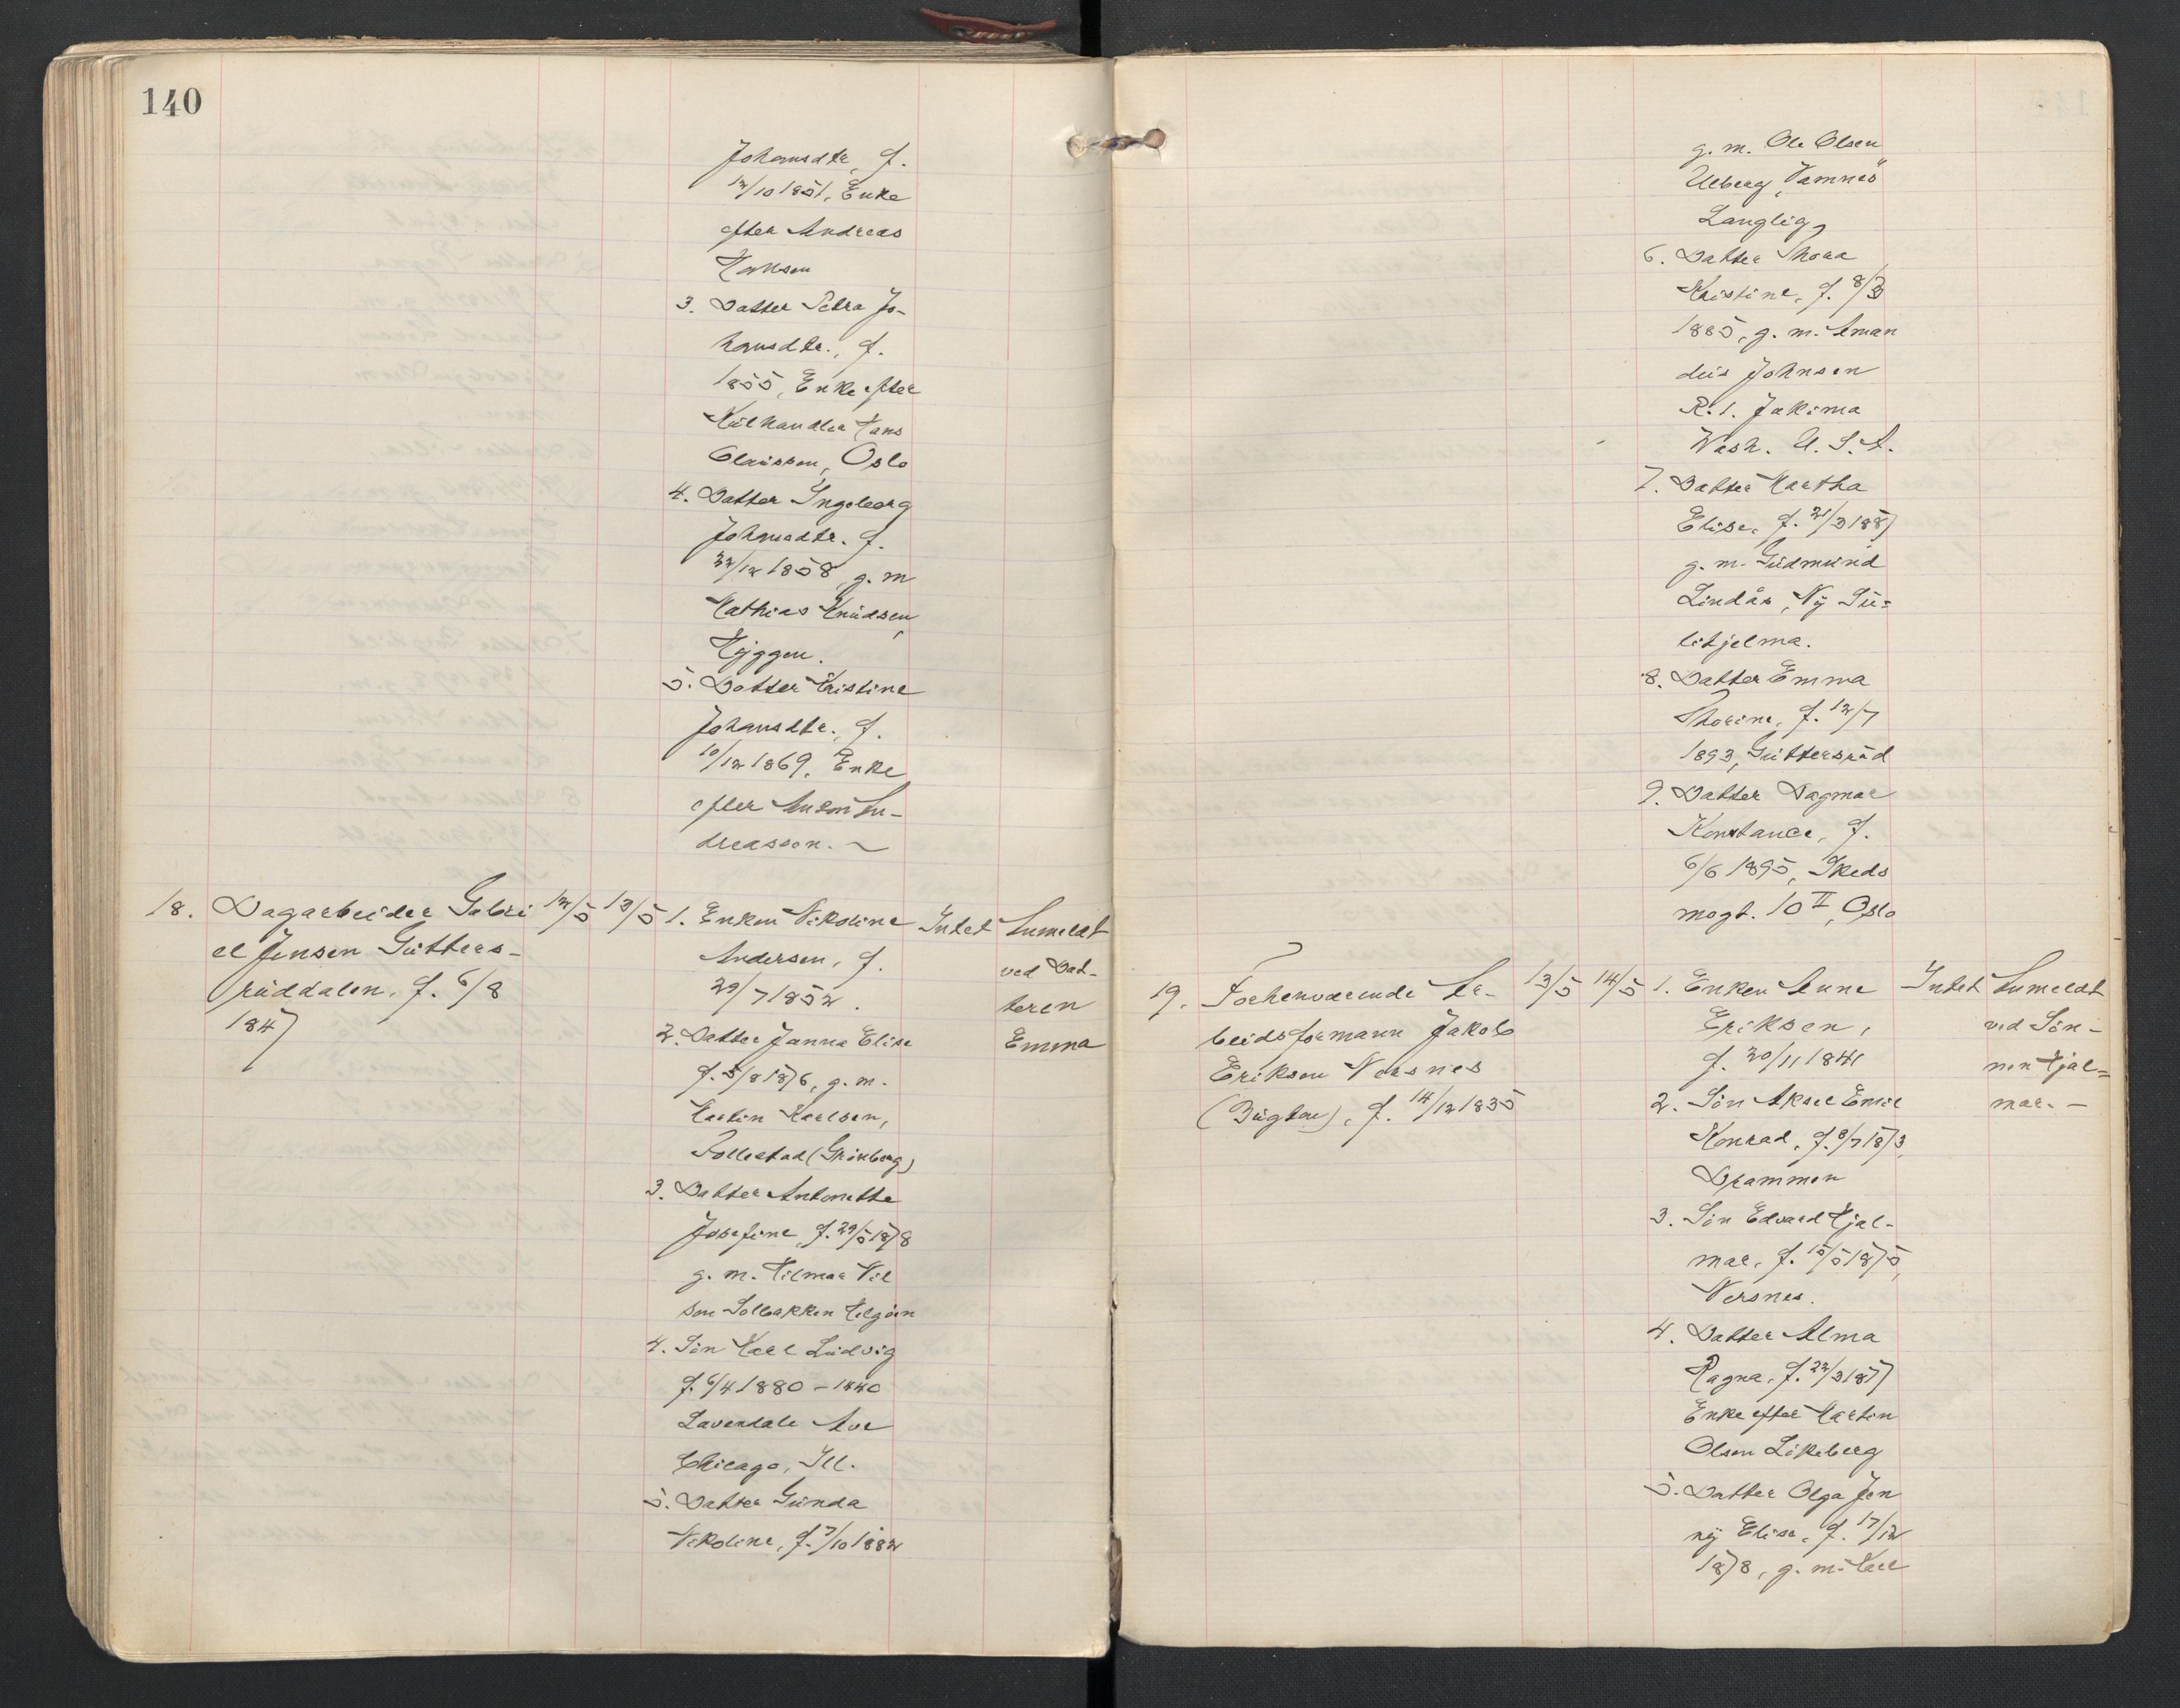 140
Johansdtr, f.
12/10 1851, Enke
efter Andreas
Hansen
3. Datter Petra Jo-
hansdtr., f.
1855, Enke efter
Kulhandler Hans
Claussen, Oslo
4. Datter Ingeborg
Johansdtr. f.
22/12 1858, g. m
Mathias Knudsen,
Hyggen.
5. Datter Kristine
Johansdtr., f.
10/12 1869, Enke
efter Anton An-
dreassen.
18. Dagarbeider Gabri
el Jensen Gutters-
ruddalen, f. 6/8
1847
12/5 13/5
1. Enken Nikoline
Andersen, f.
29/7 1852.
2. Datter Janna Elise
f. 5/8 1876, g. m.
Martin Karlsen,
Tollestad (Grønberg)
3. Datter Antonette
Josefine, f. 29/5 1878
g. m. Hilmar Nil
sen Solbakken Helgøen
4. Søn Karl Ludvig
f. 6/4 1880 - 1440
Lavendale Ave
Chicago, Ill.
5. Datter Gunda
Nikoline, f. 7/10 1882
Intet
Anmeldt
ved Dat-
teren
Emma
g. m. Ole Olsen
Ulberg, "Vamnes"
Langlig,
6. Datter Thora
Kristine, f. 8/3
1885, g. m. Aman
dus Johnsen
R. 1. Jakima
Wash. U. S. A.
7. Datter Martha
Elise, f. 21/3 1887
g. m. Gudmund
Lindås, Ny Su-
litjelma.
8. Datter Emma
Thorine, f. 12/7
1893, Guttersrud
9. Datter Dagmar
Konstance, f.
6/6 1895, Skeds
mogt. 10 II, Oslo
19. Forhenværende Ar-
beidsformann Jakob
Eriksen Nersnes
(Bugten), f. 14/12 1835
13/5 14/5
1. Enken Anne
Eriksen,
f. 20/11 1841
2. Søn Aksel Emil
Konrad, f. 8/7 1873,
Drammen
3. Søn Edvard Hjal-
mar, f. 15/5 1875,
Nersnes.
4. Datter Alma
Ragna, f. 22/3 1877
Enke efter Martin
Olsen Løkeberg
5. Datter Olga Jen
ny Elise, f. 17/12
1878, g. m. Karl
Intet
Anmeldt
ved Søn-
nen Hjal-
mar. -